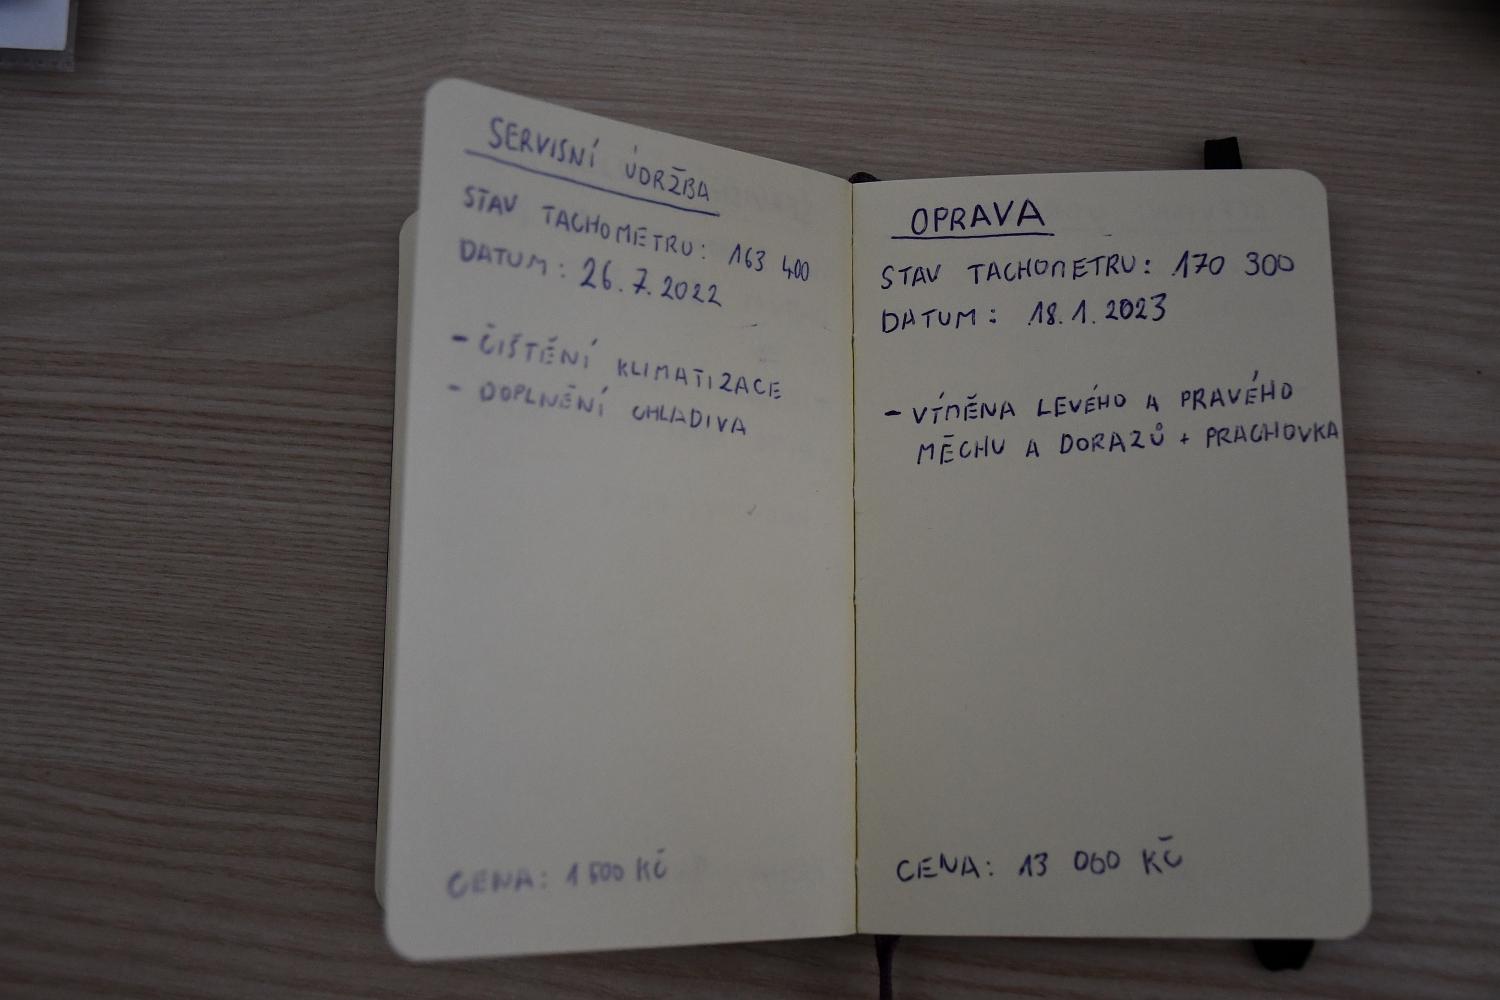 SERVISNÍ ÚDRŽBA
STAV TACHOMETRU: 163 400
DATUM: 26.7.2022
- ČIŠTĚNÍ KLIMATIZACE
- DOPLNĚNÍ CHLADIVA
CENA: 1 500 KČ
OPRAVA
STAV TACHOMETRU: 170 300
DATUM: 18.1.2023
- VÝMĚNA LEVÉHO A PRAVÉHO
MĚCHU A DORAZŮ + PRACHOVKA
CENA: 13 060 KČ